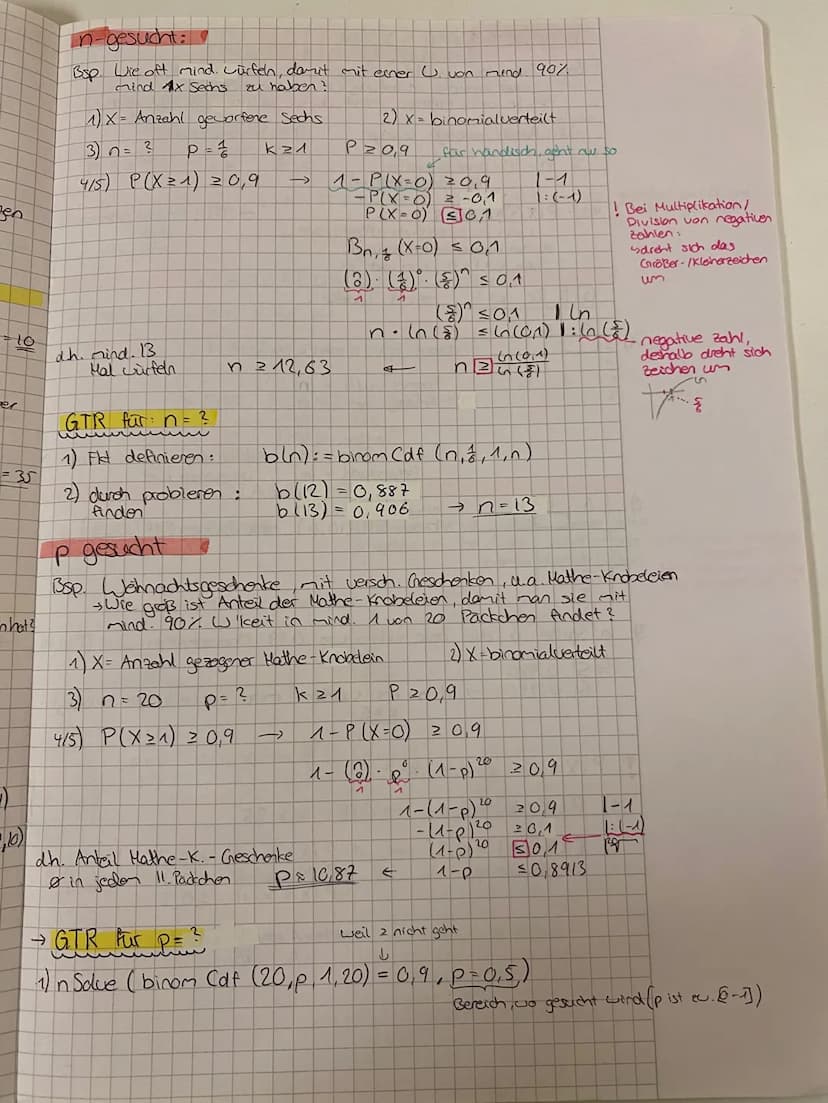 n-gesucht:
Bsp. Wie oft mind. würfeln, damit mit einer W von mind. 90%
mind 1x Sechs zu haben?
1) X = Anzahl geworfene Sechs 2) X = binomialverteilt
3) n = ? p = 1/6 k ≥ 1 P ≥ 0,9 für händisch, geht nur so
4/5) P(X ≥ 1) ≥ 0,9 → 1 - P(X=0) ≥ 0,9 | -1
-P(X=0) ≥ -0,1 | :(-1)
P(X=0) ≤ 0,1
! Bei Multiplikation/
Division von negativen
zahlen:
↳ dreht sich das
Größer-/Kleinerzeichen
um
B n, 1/6 (X=0) ≤ 0,1
(n 0) · (1/6)⁰ · (5/6)ⁿ ≤ 0,1
1 1
(5/6)ⁿ ≤ 0,1 | ln
n · ln(5/6) ≤ ln(0,1) | : ln(5/6)
negative zahl,
deshalb dreht sich
zeichen um
dh. mind. 13
Mal würfeln n ≥ 12,63 ← n ≥ ln(0,1)/ln(5/6)
ln
5/6
GTR für n = ?
1) Fkt definieren: b(n) := binomCdf (n, 1/6, 1, n)
2) durch probieren: b(12) = 0,887
finden b(13) = 0,906 → n = 13
p gesucht
Bsp. Weihnachtsgeschenke, mit versch. Geschenken, u.a. Mathe-Knobeleien
→ Wie groß ist Anteil der Mathe-Knobeleien, damit man sie mit
mind. 90% W'keit in mind. 1 von 20 Päckchen findet?
1) X = Anzahl gezogener Mathe-Knobelein 2) X = binomialverteilt
3) n = 20 p = ? k ≥ 1 P ≥ 0,9
4/5) P(X ≥ 1) ≥ 0,9 → 1 - P(X=0) ≥ 0,9
1 - (n 0) · p⁰ · (1-p)²⁰ ≥ 0,9
1 1
1-(1-p)²⁰ ≥ 0,9 | -1
-(1-p)²⁰ ≥ 0,1 | :(-1)
(1-p)²⁰ ≤ 0,1
1-p ≤ 0,8913
dh. Anteil Mathe-K.-Geschenke
ø in jedem 11. Päckchen p ≈ 10,87 ←
→ GTR für p = ?
weil ≥ nicht geht
1) nSolve (binom Cdf (20, p, 1, 20) = 0,9, p = 0,5)
Bereich, wo gesucht wird (p ist zw. [0-1])
gen
= 10
er
= 35